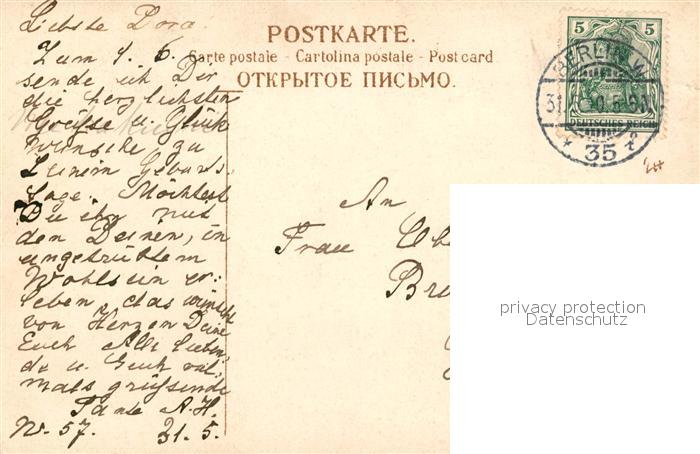 Liebste Dora.
Zum 1. 6.
sende ich Dir
die herzlichsten
Grüsse u. Glück
wünsche zu
Deinem Geburts
tage. Möchtest
Du ihn mit
den Deinen, in
ungetrübtem
Wohlsein er-
leben, das wünscht
von Herzen Deine
Euch Alle lieben
de u. Euch viel
mals grüssende
Tante A. H.
N. 57. 31. 5.
POSTKARTE.
Carte postale - Cartolina postale - Post card
ОТКРЫТОЕ ПИСЬМО.
5 5
DEUTSCHES REICH
BERLIN W.
31. 5
35
An
Frau
privacy protection
Datenschutz